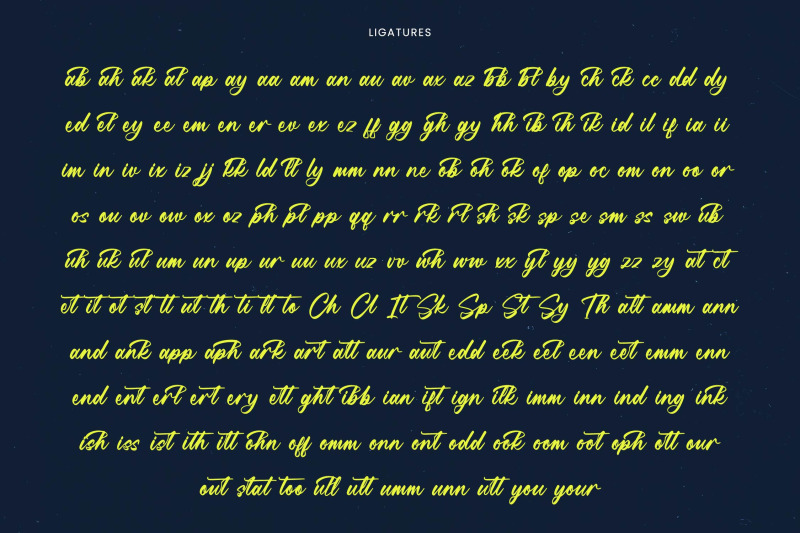 LIGATURES
ab ah ak al ap ay aa am an au av ax az bb bl by ch ck cc dd dy
ed el ey ee em en er ev ex ez ff gg gh gy hh ib ih ik id il if ia ii
im in iv ix iz jj kk ld ll ly mm nn ne ob oh ok of op oc om on oo or
os ou ov ow ox oz ph pl pp qq rr rk rl sh sk sp se sm ss sw ub
uh uk ul um un up ur uu ux uz vv wh ww xx yl yy yg zz zy at ct
et it ot st tt ut th ti tl to Ch Cl It Sk Sp St Sy Th all amm ann
and ank app aph ark art att aur aut edd eek eel een eet emm enn
end ent erl ert ery ett ght ibb ian ift ign ilk imm inn ind ing ink
ish iss ist ith itt ohn off omm onn ont odd ook oom oot oph ott our
out stat too ull utt umm unn utt you your